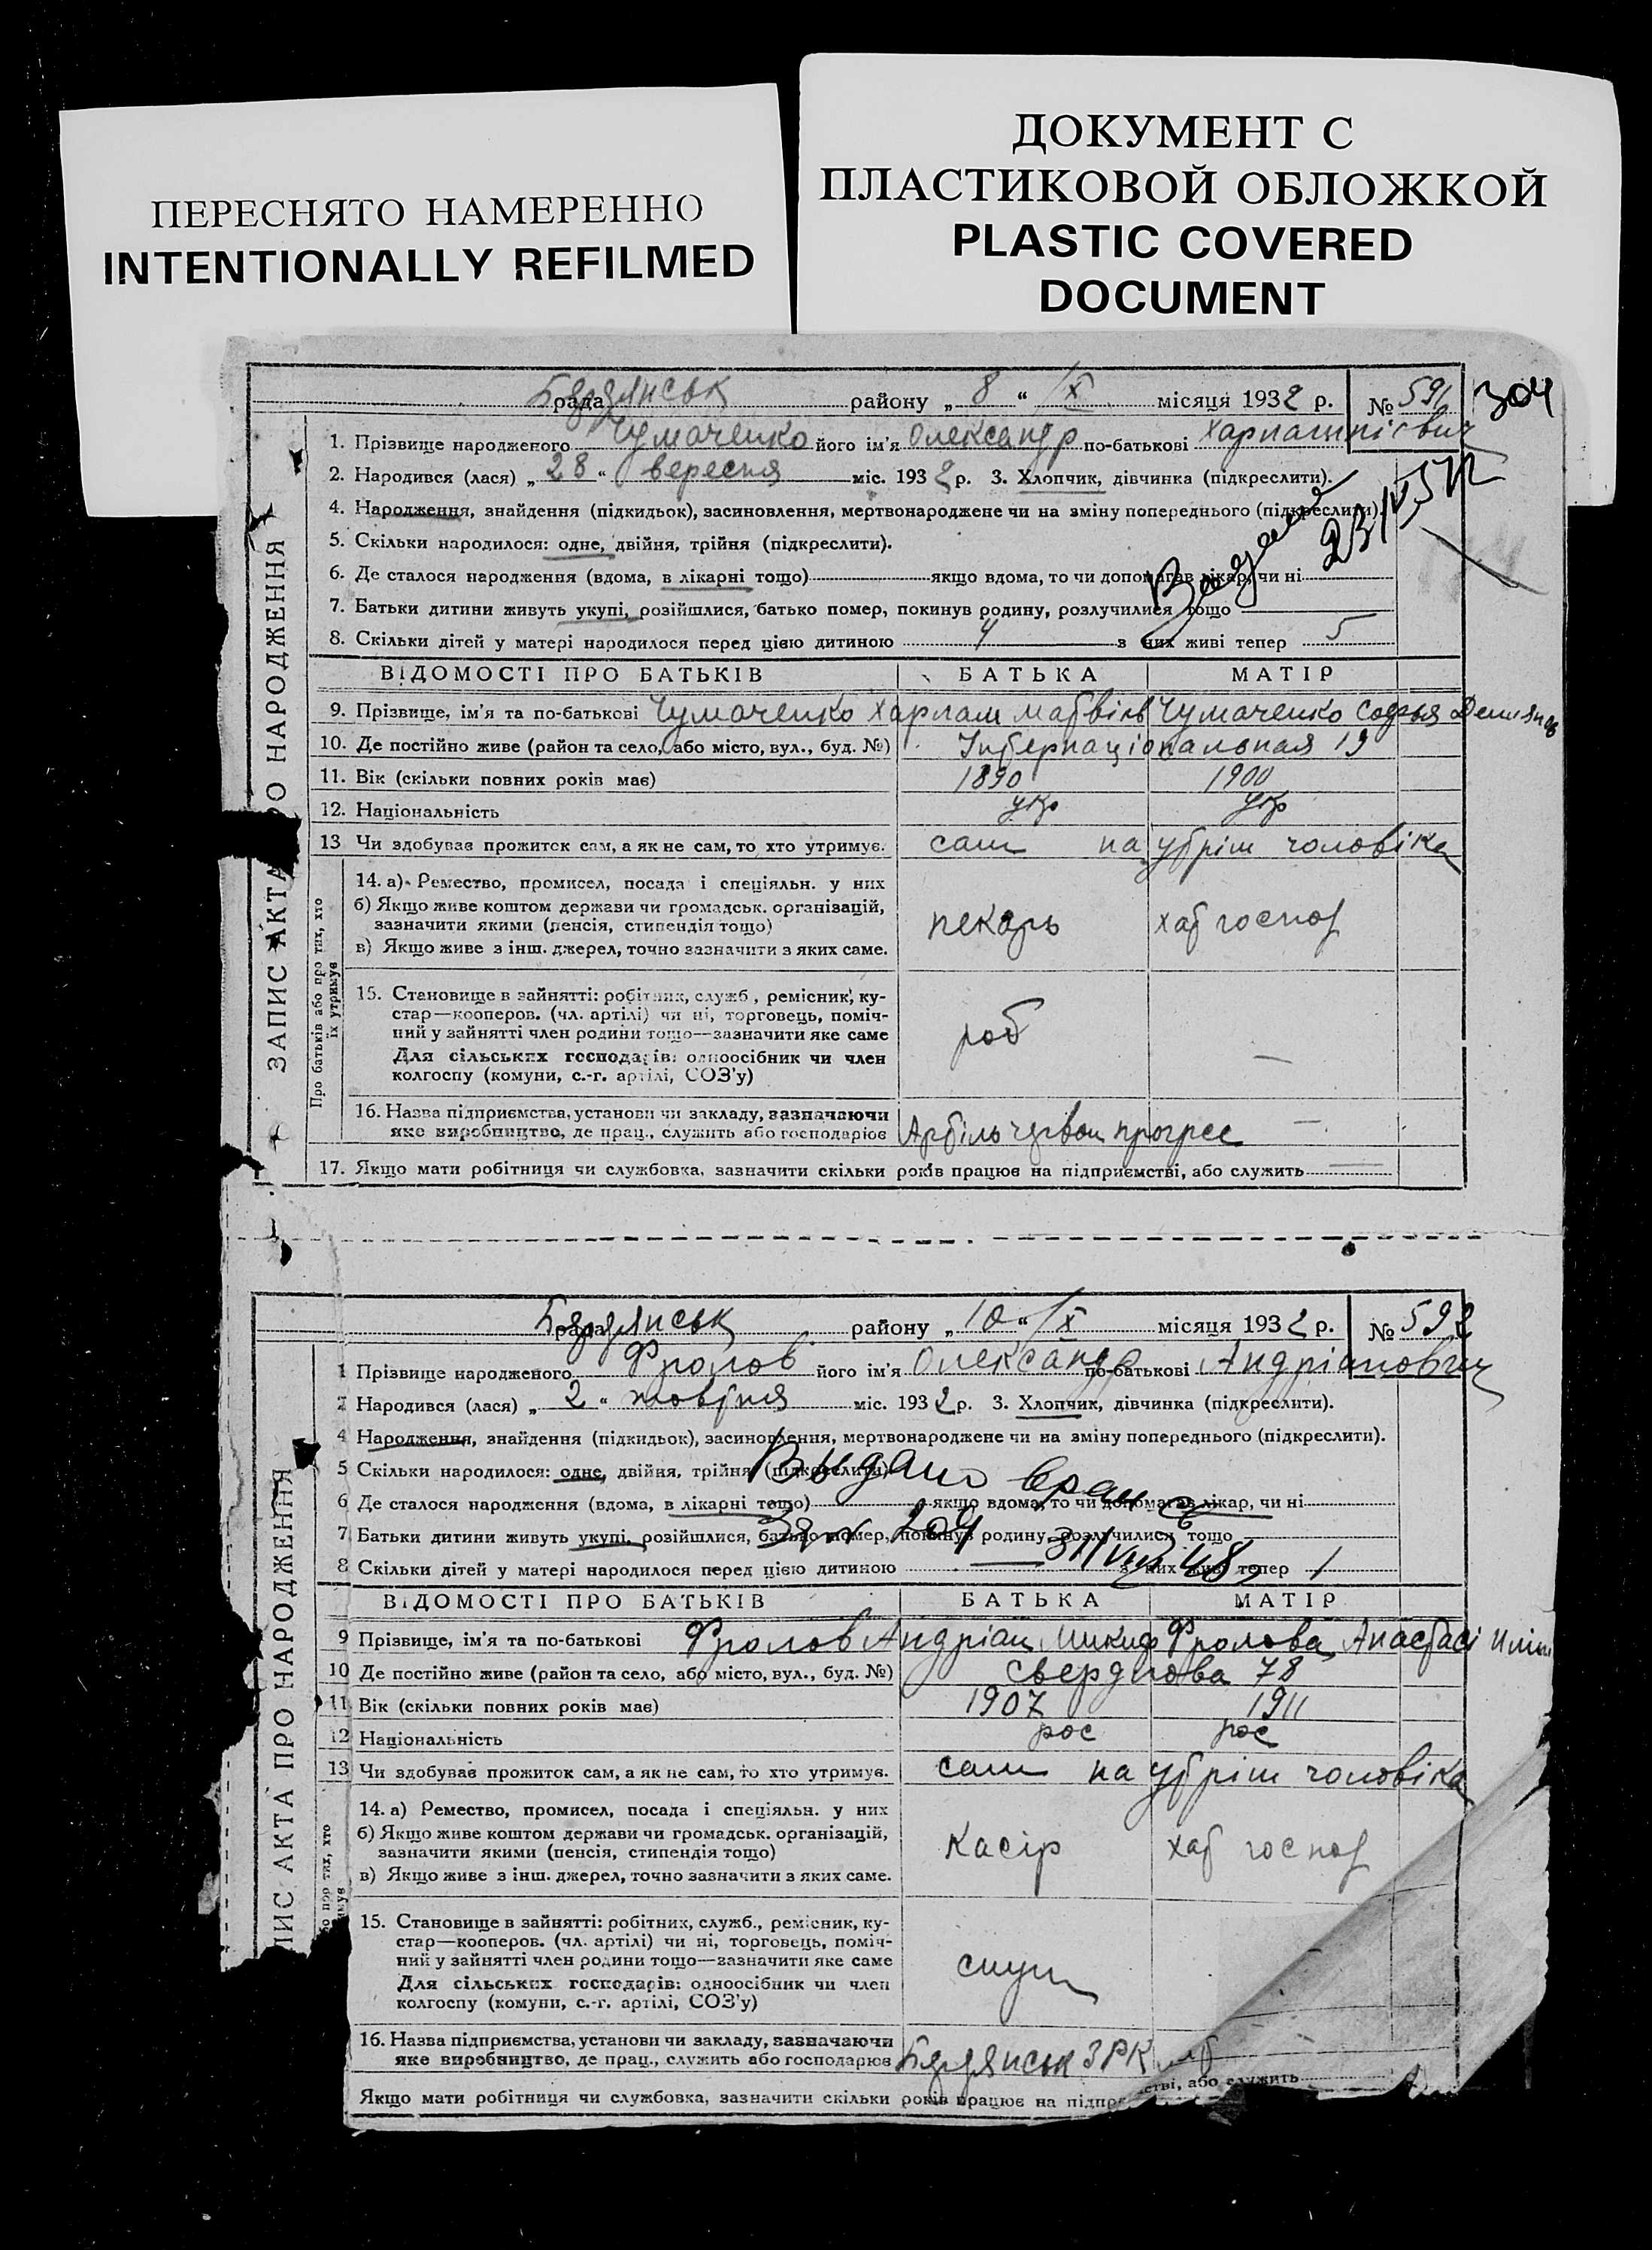 ПЕРЕСНЯТО НАМЕРЕННО
INTENTIONALLY REFILMED
ДОКУМЕНТ С
ПЛАСТИКОВОЙ ОБЛОЖКОЙ
PLASTIC COVERED
DOCUMENT
304
ЗАПИС АКТА ПРО НАРОДЖЕННЯ
Бердянськ рада району „ 8 “ X місяця 1932 р. № 591
1. Прізвище народженого Чумаченко його ім'я Олександр по-батькові
2. Народився (лася) „ 28 “ вересня міс. 1932 р. 3. Хлопчик, дівчинка (підкреслити).
4. Народження, знайдення (підкидьок), засиновлення, мертвонароджене чи на зміну попереднього (підкреслити).
5. Скільки народилося: одне, двійня, трійня (підкреслити).
6. Де сталося народження (вдома, в лікарні тощо) якщо вдома, то чи допомагав лікар, чи ні
7. Батьки дитини живуть укупі, розійшлися, батько помер, покинув родину, розлучилися тощо
8. Скільки дітей у матері народилося перед цією дитиною 4 з них живі тепер 5
ВІДОМОСТІ ПРО БАТЬКІВ БАТЬКА МАТІР
9. Прізвище, ім'я та по-батькові Чумаченко Харлам Матвіїв Чумаченко Софья
10. Де постійно живе (район та село, або місто, вул., буд. №) Інтернаціональная 19
11. Вік (скільки повних років має) 1890 1900
12. Національність укр укр
13 Чи здобуває прожиток сам, а як не сам, то хто утримує. сам на утрім чоловіка
Про батьків або про тих, хто їх утримує
14. а) Ремество, промисел, посада і спеціяльн. у них
б) Якщо живе коштом держави чи громадськ. організацій,
зазначити якими (пенсія, стипендія тощо)
в) Якщо живе з інш. джерел, точно зазначити з яких саме.
пекарь хат господ
15. Становище в зайнятті: робітник, служб., ремісник, ку-
стар—кооперов. (чл. артілі) чи ні, торговець, поміч-
ний у зайнятті член родини тощо—зазначити яке саме
Для сільських господарів: одноосібник чи член
колгоспу (комуни, с.-г. артілі, СОЗ'у)
роб —
16. Назва підприємства, установи чи закладу, зазначаючи
яке виробництво, де прац., служить або господарює Артіль червон прогрес —
17. Якщо мати робітниця чи службовка, зазначити скільки років працює на підприємстві, або служить —
ЗАПИС АКТА ПРО НАРОДЖЕННЯ
Бердянськ рада району „ 10 “ X місяця 1932 р. № 592
1 Прізвище народженого Фролов його ім'я Олександр по-батькові Андріанович
2 Народився (лася) „ 2 “ жовтня міс. 1932 р. 3. Хлопчик, дівчинка (підкреслити).
4 Народження, знайдення (підкидьок), засиновлення, мертвонароджене чи на зміну попереднього (підкреслити).
5 Скільки народилося: одне, двійня, трійня (підкреслити)
Выдано
6 Де сталося народження (вдома, в лікарні тощо) якщо вдома, то чи допомагав лікар, чи ні
7 Батьки дитини живуть укупі, розійшлися, батько помер, покинув родину, розлучилися тощо
8 Скільки дітей у матері народилося перед цією дитиною — з них живі тепер 1
ВІДОМОСТІ ПРО БАТЬКІВ БАТЬКА МАТІР
9 Прізвище, ім'я та по-батькові Фролов Андріан Микиф Фролова Анастасі
10 Де постійно живе (район та село, або місто, вул., буд. №) Свердлова 78
11 Вік (скільки повних років має) 1907 1911
12 Національність рос рос
13 Чи здобуває прожиток сам, а як не сам, то хто утримує. сам на утрім чоловіка
14. а) Ремество, промисел, посада і спеціяльн. у них
б) Якщо живе коштом держави чи громадськ. організацій,
зазначити якими (пенсія, стипендія тощо)
в) Якщо живе з інш. джерел, точно зазначити з яких саме.
Касір хат господ
15. Становище в зайнятті: робітник, служб., ремісник, ку-
стар—кооперов. (чл. артілі) чи ні, торговець, поміч-
ний у зайнятті член родини тощо—зазначити яке саме
Для сільських господарів: одноосібник чи член
колгоспу (комуни, с.-г. артілі, СОЗ'у)
служ
16. Назва підприємства, установи чи закладу, зазначаючи
яке виробництво, де прац., служить або господарює Бердянськ ЗРК
Якщо мати робітниця чи службовка, зазначити скільки років працює на підпр стві, або служить